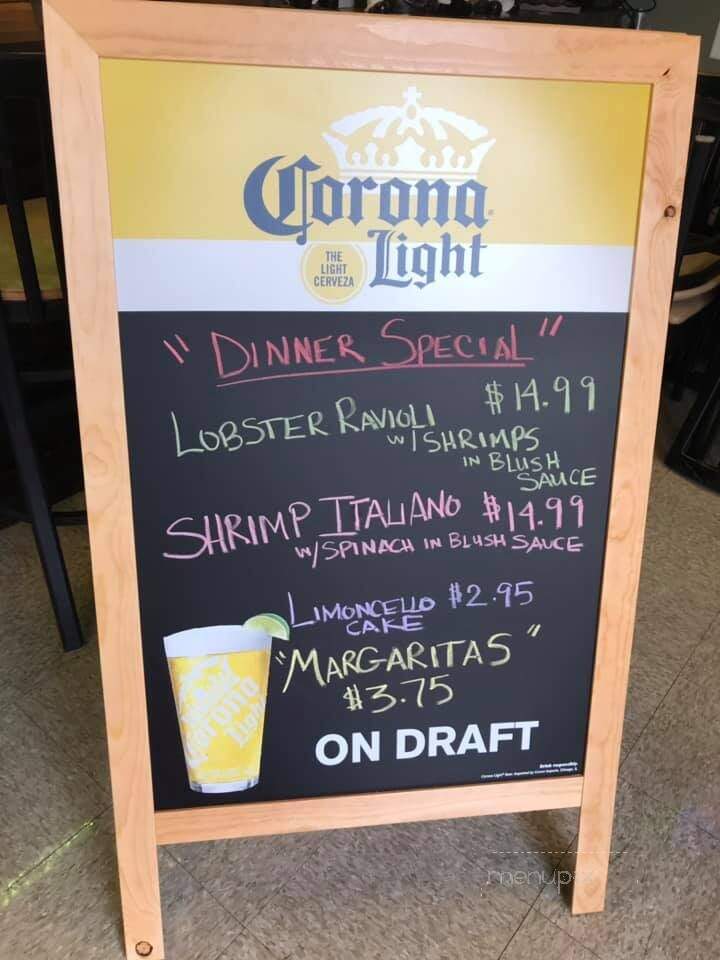 Corona
Light
THE
LIGHT
CERVEZA
"DINNER SPECIAL"
LOBSTER RAVIOLI $14.99
W/SHRIMPS
IN BLUSH
SAUCE
SHRIMP ITALIANO $14.99
W/SPINACH IN BLUSH SAUCE
LIMONCELLO $2.95
CAKE
"MARGARITAS"
$3.75
Corona
Light
ON DRAFT
Drink responsibly
menupix